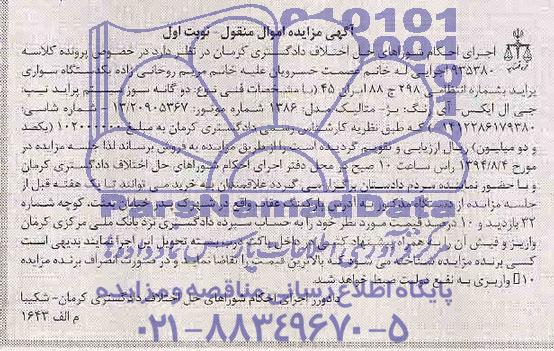 آگهی مزایده اموال منقول - نوبت اول
اجرای احکام شوراهای حل اختلاف دادگستری کرمان در نظر دارد در خصوص پرونده کلاسه
۹۳۵۳۸۰ اجرایی له خانم عصمت خسرویان علیه خانم مریم روحانی زاده یکدستگاه سواری
پراید بشماره انتظامی ۲۹۸ ج ۸۸ ایران ۴۵ (با مشخصات فنی نوع: دو گانه سوز سیستم پراید تیپ
جی ال ایکس - آی رنگ: بژ - متالیک مدل: ۱۳۸۶ شماره موتور: ۱۳/۲۰۹۰۵۳۶۷ - شماره شاسی:
۱۲۲۸۶۱۷۹۳۸۰) که طبق نظریه کارشناس رسمی دادگستری کرمان به مبلغ ۱۰۲۰۰۰۰۰۰ (یکصد
و دو میلیون) ریال ارزیابی و تقویم گردیده است را از طریق مزایده به فروش برساند لذا جلسه مزایده در
مورخ ۱۳۹۴/۸/۴ راس ساعت ۱۰ صبح در محل دفتر اجرای احکام شوراهای حل اختلاف دادگستری کرمان
و با حضور نماینده مردم دادستان برگزار می گردد علاقمندان به خرید می توانند تا یک هفته قبل از
جلسه مزایده از دستگاه مذکور به آدرس پارکینگ عقاب واقع در شهرک بندر خیابان بعثت، کوچه شماره
۳۲ بازدید و ۱۰ درصد قیمت مورد نظر خود را به حساب سپرده دادگستری نزد بانک ملی مرکزی کرمان
واریز و فیش آن را به همراه پیشنهاد کتبی در داخل پاکت دربسته تحویل این اجرا نمایند بدیهی است
کسی برنده مزایده شناخته می شود که بالاترین قیمت را تقاضا نماید و در صورت انصراف برنده مزایده
۱۰٪ واریزی به نفع دولت ضبط خواهد شد.
دادورز اجرای احکام شوراهای حل اختلاف دادگستری کرمان - شکیبا
م الف ۱۶۴۳
ParsNamadData
پایگاه اطلاع رسانی مناقصه و مزایده
۰۲۱-۸۸۳۴۹۶۷۰-۵